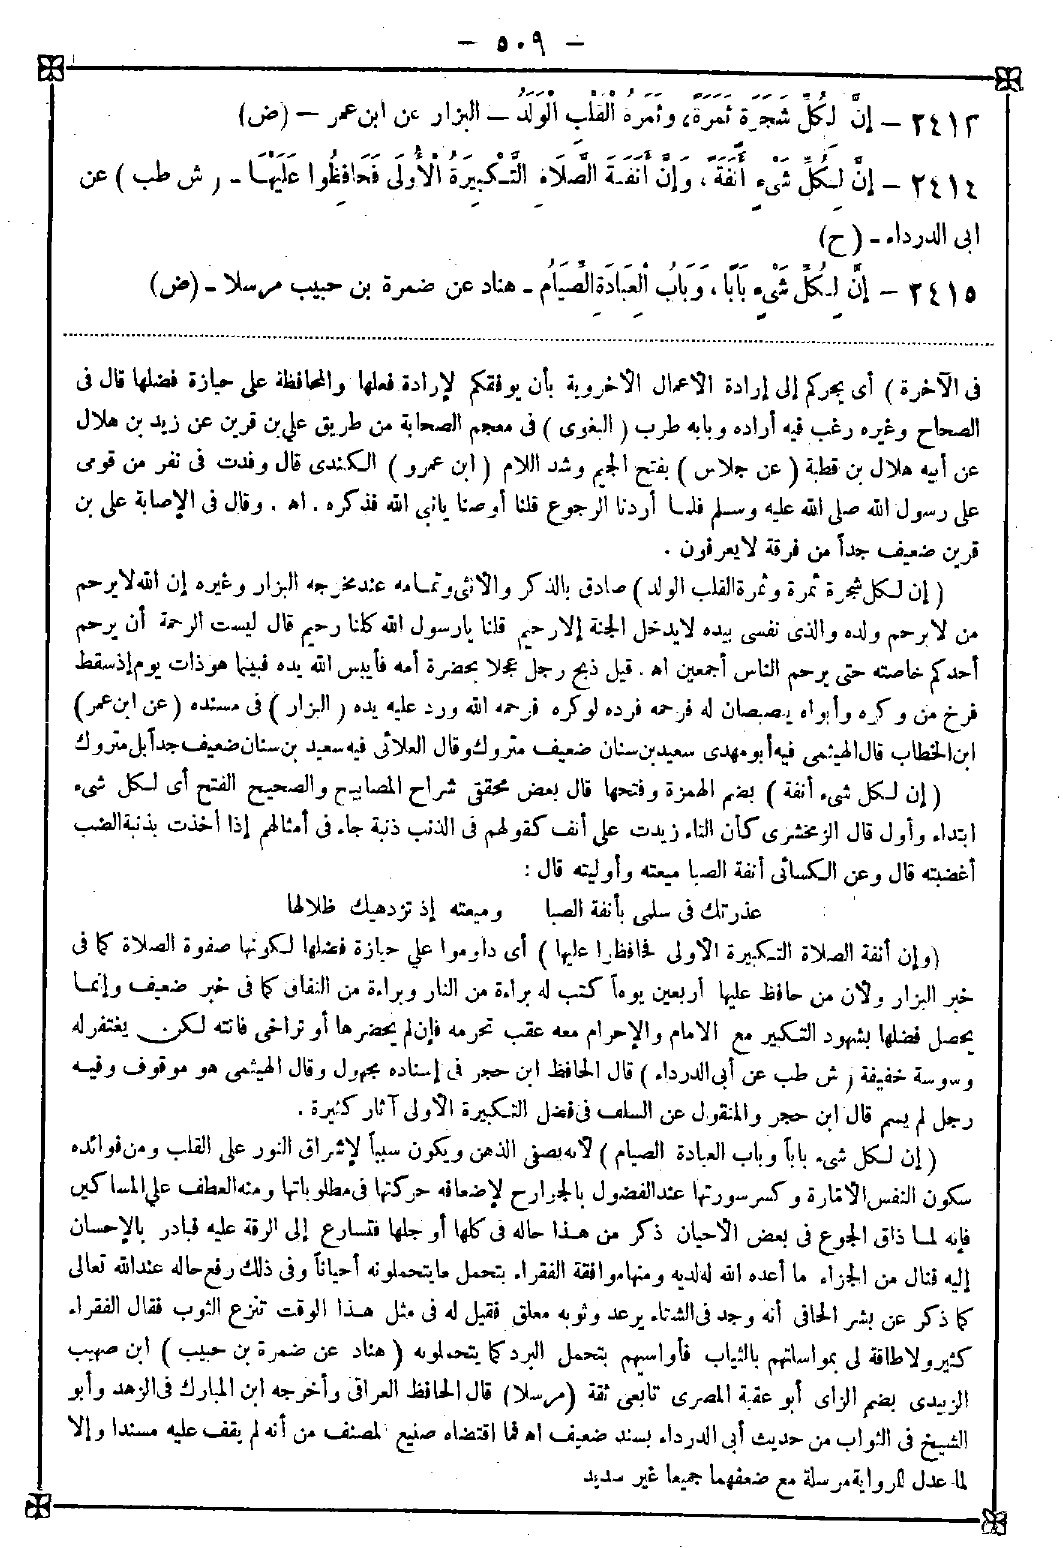 - ٥٠٩ -
٢٤١٣ - إِنَّ لِكُلِّ شَجَرَةٍ ثَمَرَةً، وَثَمَرَةُ الْقَلْبِ الْوَلَدُ - البزار عن ابن عمر - (ض)
٢٤١٤ - إِنَّ لِكُلِّ شَيْءٍ أَنَفَةً، وَإِنَّ أَنَفَةَ الصَّلَاةِ التَّكْبِيرَةُ الْأُولَى فَحَافِظُوا عَلَيْهَا - (ش طب) عن
ابى الدرداء - (ح)
٢٤١٥ - إِنَّ لِكُلِّ شَيْءٍ بَابًا، وَبَابُ الْعِبَادَةِ الصِّيَامُ - هناد عن ضمرة بن حبيب مرسلا - (ض)
فى الآخرة) أى يحركم إلى إرادة الأعمال الأخروية بأن يوفقكم لإرادة فعلها والمحافظة على حيازة فضلها قال فى
الصحاح وغيره رغب فيه أراده وبابه طرب (البغوى) فى معجم الصحابة من طريق على بن قرين عن زيد بن هلال
عن أبيه هلال بن قطبة (عن جلاس) بفتح الجيم وشد اللام (ابن عمرو) الكندى قال وفدت فى نفر من قومى
على رسول الله صلى الله عليه وسلم فلما أردنا الرجوع قلنا أوصنا يانبى الله فذكره . اه . وقال فى الإصابة على بن
قرين ضعيف جداً من فرقة لا يعرفون .
(إن لكل شجرة ثمرة وثمرة القلب الولد) صادق بالذكر والأنثى وتمامه عند مخرجه البزار وغيره إن الله لا يرحم
من لا يرحم ولده والذى نفسى بيده لا يدخل الجنة إلا رحيم قلنا يارسول الله كلنا رحيم قال ليست الرحمة أن يرحم
أحدكم خاصته حتى يرحم الناس أجمعين اه . قيل ذبح رجل عجلا بحضرة أمه فأيبس الله يده فبينما هو ذات يوم إذ سقط
فرخ من وكره وأبواه يبصبصان له فرحمه فرده لوكره فرحمه الله ورد عليه يده (البزار) فى مسنده (عن ابن عمر)
ابن الخطاب قال الهيثمى فيه أبو مهدى سعيد بن سنان ضعيف متروك وقال العلائى فيه سعيد بن سنان ضعيف جداً بل متروك
(إن لكل شىء أنفة) بضم الهمزة وفتحها قال بعض محققى شراح المصابيح والصحيح الفتح أى لكل شىء
ابتداء وأول قال الزمخشرى كأن التاء زيدت على أنف كقولهم فى الذنب ذنبة جاء فى أمثالهم إذا أخذت بذنبة الضب
أغضبته قال وعن الكسائى أنفة الصبا ميعته وأوليته قال :
عذرتك فى سلمى بأنفة الصبا وميعته إذ تزدهيك ظلالها
(وإن أنفة الصلاة التكبيرة الأولى فحافظوا عليها) أى داوموا على حيازة فضلها لكونها صفوة الصلاة كما فى
خبر البزار ولأن من حافظ عليها أربعين يوماً كتب له براءة من النار وبراءة من النفاق كما فى خبر ضعيف وإنما
يحصل فضلها بشهود التكبير مع الامام والإحرام معه عقب تحرمه فإن لم يحضرها أو تراخى فاتته لكن يغتفر له
وسوسة خفيفة (ش طب عن أبى الدرداء) قال الحافظ ابن حجر فى إسناده مجهول وقال الهيثمى هو موقوف وفيه
رجل لم يسم قال ابن حجر والمنقول عن السلف فى فضل التكبيرة الأولى آثار كثيرة .
(إن لكل شىء باباً وباب العبادة الصيام) لأنه يصفى الذهن ويكون سبباً لإشراق النور على القلب ومن فوائده
سكون النفس الأمارة وكسر سورتها عند الفضول بالجوارح لإضعافه حركتها فى مطلوباتها ومنه العطف على المساكين
فإنه لما ذاق الجوع فى بعض الأحيان ذكر من هذا حاله فى كلها أو جلها فتسارع إلى الرقة عليه فبادر بالإحسان
إليه فنال من الجزاء ما أعده الله له لديه ومنها موافقة الفقراء بتحمل ما يتحملونه أحياناً وفى ذلك رفع حاله عند الله تعالى
كما ذكر عن بشر الحافى أنه وجد فى الشتاء يرعد وثوبه معلق فقيل له فى مثل هذا الوقت تنزع الثوب فقال الفقراء
كثير ولا طاقة لى بمواساتهم بالثياب فأواسيهم بتحمل البرد كما يتحملونه (هناد عن ضمرة بن حبيب) ابن صهيب
الزبيدى بضم الزاى أبو عقبة المصرى تابعى ثقة (مرسلا) قال الحافظ العراقى وأخرجه ابن المبارك فى الزهد وأبو
الشيخ فى الثواب من حديث أبى الدرداء بسند ضعيف اه فما اقتضاه صنيع المصنف من أنه لم يقف عليه مسندا وإلا
لما عدل للرواية مرسلة مع ضعفهما جميعا غير سديد